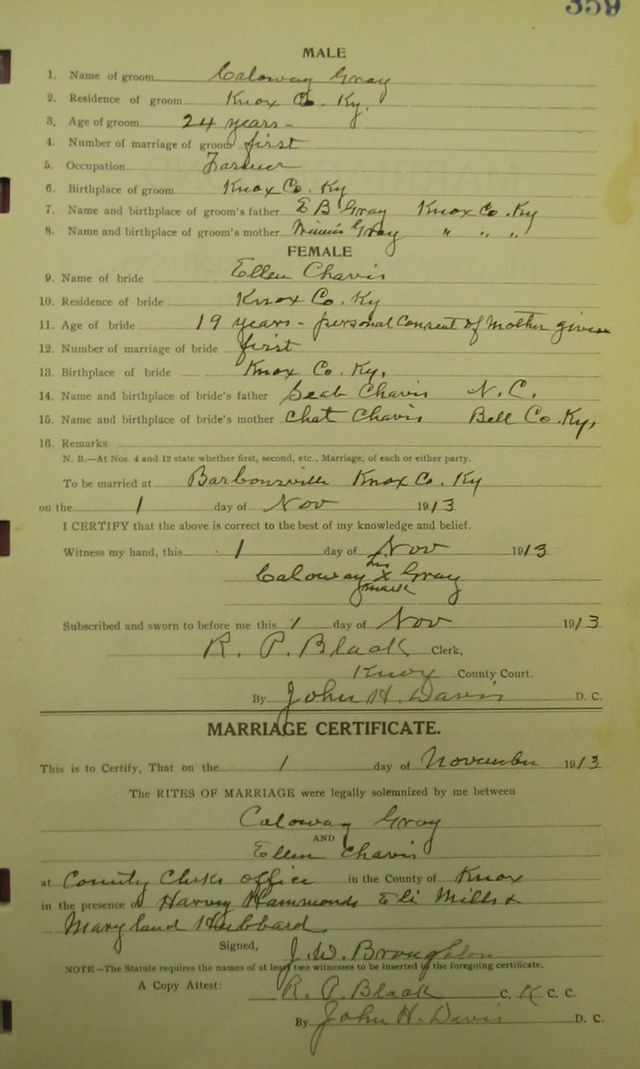 359
MALE
1. Name of groom Caloway Gray
2. Residence of groom Knox Co. Ky.
3. Age of groom 24 years -
4. Number of marriage of groom first
5. Occupation Farmer
6. Birthplace of groom Knox Co. Ky
7. Name and birthplace of groom's father E B Gray Knox Co. Ky
8. Name and birthplace of groom's mother Gray " " "
FEMALE
9. Name of bride Ellen Chavis
10. Residence of bride Knox Co. Ky
11. Age of bride 19 years - personal consent of Mother given
12. Number of marriage of bride first
13. Birthplace of bride Knox Co. Ky.
14. Name and birthplace of bride's father Chavis N. C.
15. Name and birthplace of bride's mother Chat Chavis Bell Co. Ky.
16. Remarks
N. B.—At Nos. 4 and 12 state whether first, second, etc., Marriage, of each or either party.
To be married at Barbonsville Knox Co. Ky
on the 1 day of Nov 1913
I CERTIFY that the above is correct to the best of my knowledge and belief.
Witness my hand, this 1 day of Nov 1913
his
Caloway X Gray
mark
Subscribed and sworn to before me this 1 day of Nov 1913
R. P. Black Clerk,
Knox County Court.
By John H. Davis D. C.
MARRIAGE CERTIFICATE.
This is to Certify, That on the 1 day of November 1913
The RITES OF MARRIAGE were legally solemnized by me between
Caloway Gray
AND
Ellen Chavis
at County Clerks office in the County of Knox
in the presence of Harvey Hammonds Eli Mills &
Maryland Hubbard
Signed, J. W. Broughton
NOTE—The Statute requires the names of at least two witnesses to be inserted in the foregoing certificate.
A Copy Attest: R. P. Black C. K C. C.
By John H. Davis D. C.